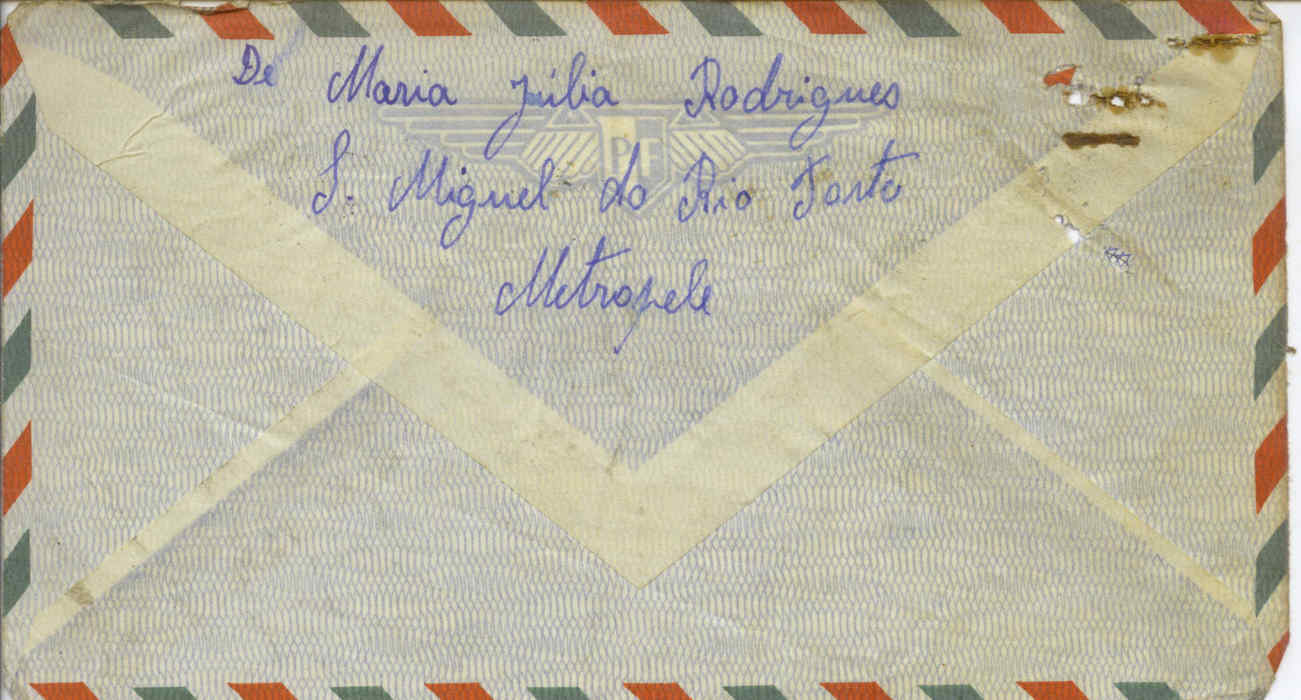 De Maria Júlia Rodrigues
S. Miguel do Rio Torto
Metropele